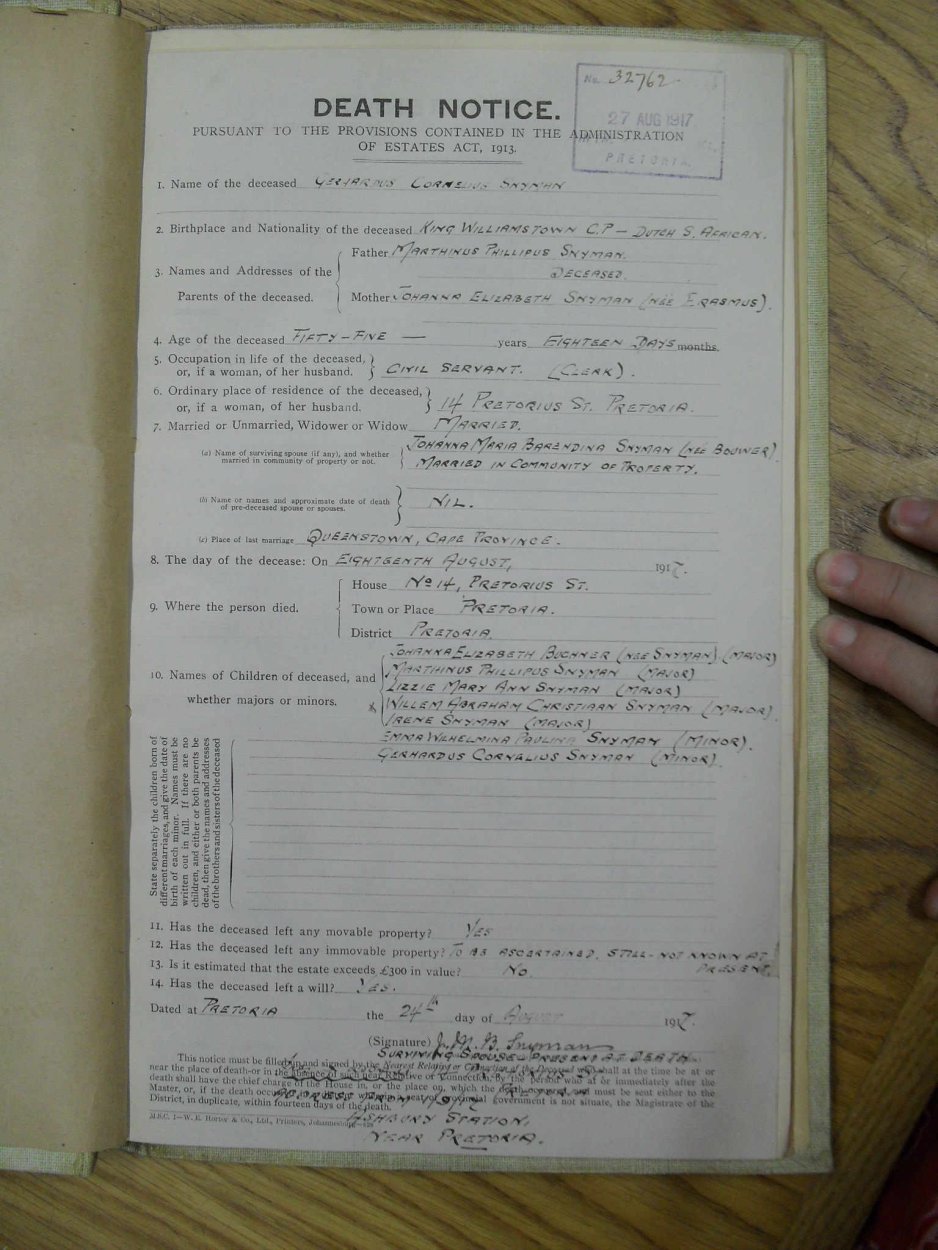 No. 32762.
DEATH NOTICE.
27 AUG 1917
PURSUANT TO THE PROVISIONS CONTAINED IN THE ADMINISTRATION
OF ESTATES ACT, 1913.
PRETORIA
1. Name of the deceased GERHARDUS CORNELIUS SNYMAN
2. Birthplace and Nationality of the deceased KING WILLIAMSTOWN C.P – DUTCH S. AFRICAN.
Father MARTHINUS PHILLIPUS SNYMAN.
3. Names and Addresses of the DECEASED.
Parents of the deceased. Mother JOHANNA ELIZABETH SNYMAN (NÉE ERASMUS).
4. Age of the deceased FIFTY-FIVE — years EIGHTEEN DAYS months.
5. Occupation in life of the deceased,
or, if a woman, of her husband. CIVIL SERVANT. (CLERK).
6. Ordinary place of residence of the deceased,
or, if a woman, of her husband. 14 PRETORIUS ST. PRETORIA.
7. Married or Unmarried, Widower or Widow MARRIED.
(a) Name of surviving spouse (if any), and whether JOHANNA MARIA BARENDINA SNYMAN (NÉE BOUWER)
married in community of property or not. MARRIED IN COMMUNITY OF PROPERTY.
(b) Name or names and approximate date of death
of pre-deceased spouse or spouses. NIL.
(c) Place of last marriage QUEENSTOWN, CAPE PROVINCE.
8. The day of the decease: On EIGHTEENTH AUGUST, 1917.
House No 14, PRETORIUS ST.
9. Where the person died. Town or Place PRETORIA.
District PRETORIA.
JOHANNA ELIZABETH BUCHNER (NÉE SNYMAN) (MAJOR)
MARTHINUS PHILLIPUS SNYMAN (MAJOR)
10. Names of Children of deceased, and LIZZIE MARY ANN SNYMAN (MAJOR)
whether majors or minors. WILLEM ABRAHAM CHRISTIAAN SNYMAN (MAJOR).
IRENE SNYMAN (MAJOR)
EMMA WILHELMINA PAULINA SNYMAN (MINOR).
GERHARDUS CORNELIUS SNYMAN (MINOR).
State separately the children born of
different marriages, and give the date of
birth of each minor. Names must be
written out in full. If there are no
children, and either or both parents be
dead, then give the names and addresses
of the brothers and sisters of the deceased
11. Has the deceased left any movable property? YES
12. Has the deceased left any immovable property? TO BE ASCERTAINED. STILL NOT KNOWN AT
13. Is it estimated that the estate exceeds £300 in value? NO. PRESENT.
14. Has the deceased left a will? YES.
Dated at PRETORIA the 24th day of AUGUST 1917.
(Signature) J. M. B. Snyman
SURVIVING SPOUSE – PRESENT AT DEATH
This notice must be filled up and signed by the Nearest Relative or Connection of the Deceased who shall at the time be at or
near the place of death-or in the absence of such near Relative or Connection, by the person who at or immediately after the
death shall have the chief charge of the House in, or the place on, which the death occurred, and must be sent either to the
Master, or, if the death occurred where the seat of provincial government is not situate, the Magistrate of the
District, in duplicate, within fourteen days of the death.
ASHBURY STATION,
M.S.C. 1—W. E. Hortor & Co., Ltd., Printers, Johannesburg
NEAR PRETORIA.